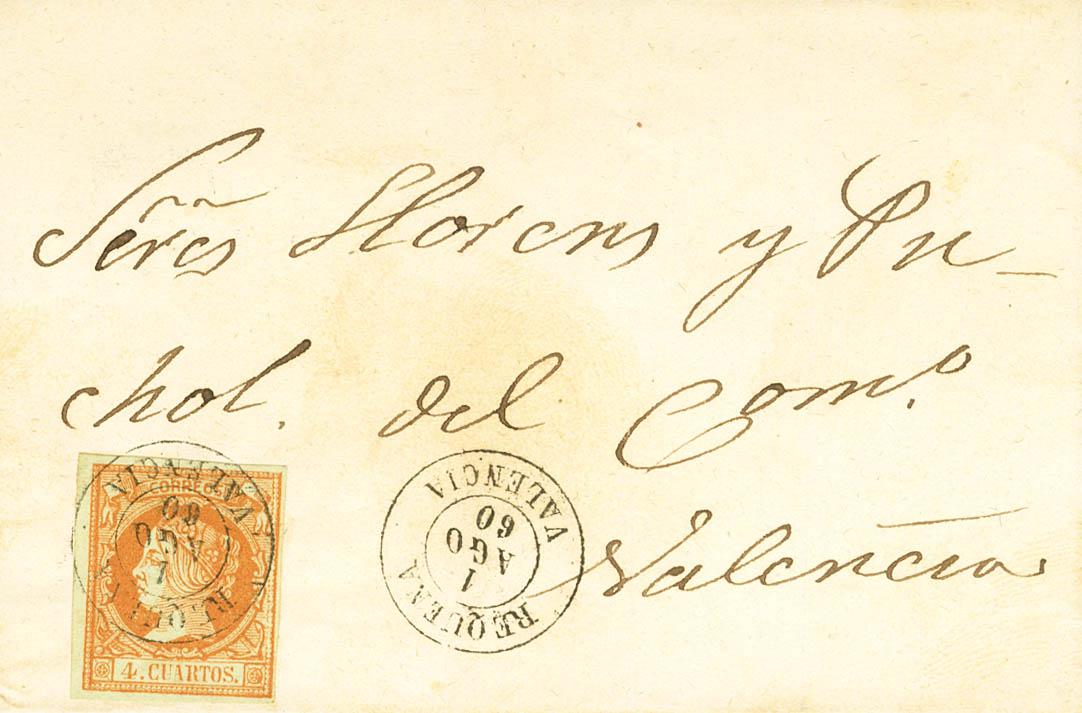 Señres Llorens y Pu-
chol. del Com.o
Valencia
CORREOS
REQUENA
1
AGO
60
VALENCIA
4. CUARTOS.
REQUENA
1
AGO
60
VALENCIA